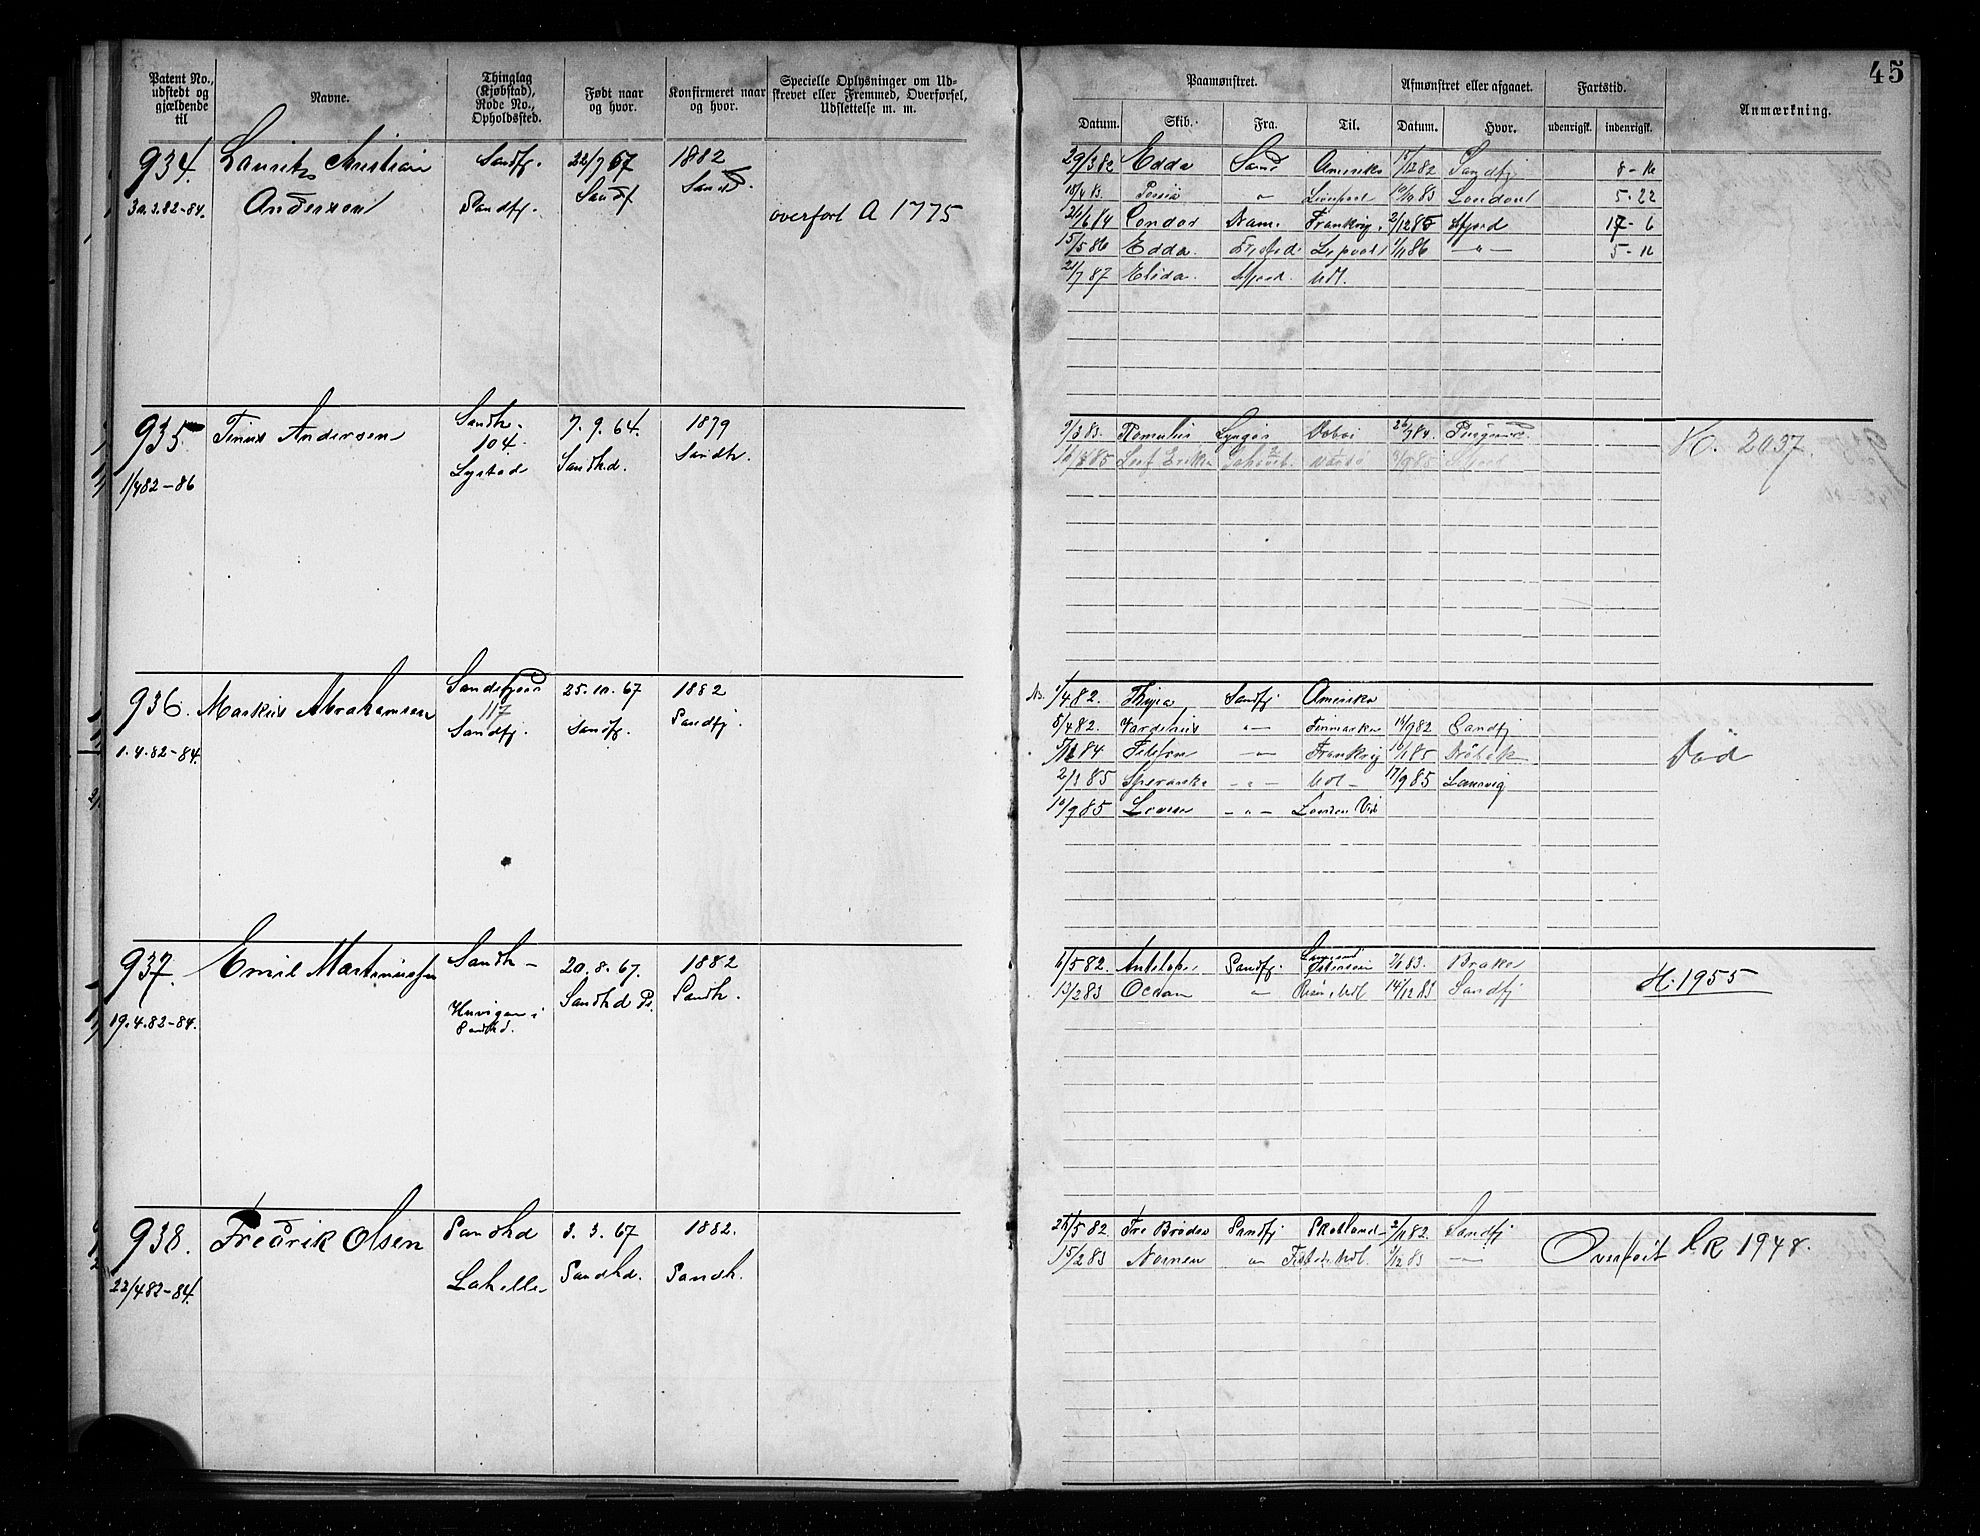 45
Patent No., udstedt og gjældende til
Navne.
Thinglag (Kjøbstad), Rode No., Opholdssted.
Født naar og hvor.
Konfirmeret naar og hvor.
Specielle Oplysninger om Udskrevet eller Fremmed, Overførsel, Udslettelse m. m.
Paamønstret.
Afmønstret eller afgaaet.
Fartstid.
Anmærkning.
Datum. Skib. Fra. Til. Datum. Hvor. udenrigsk. indenrigsk.
934. Laurits Christian Sandfj. 22/7 67 1882
30.3.82-84. Andersen Sandfj. Sandf Sandf. overført A 1775
29/3 82 Edda Sand Amerika 15/12 82 Sandfj 8-16
18/4 83 " Liverpool 10/10 83 London 5-22
21/6 84 Condor Dram. Frankrig. 2/12 85 Sfjord 17-6
15/5 86 Edda. 1/11 86 -"- 5-16
21/7 87 Elida. Sfjord. Udl.
935. Tinius Andersen Sandh. 7.9.64. 1879
104. Sandhd. Sandh.
1/4 82-86 Lystad
9/3 83. Romulus Lyngør 26/7 84.
Leif
H. 2037.
936. Markus Abrahamsen Sandefjord 25.10.67 1882
117 Sandfj. Sandfj.
1.4.82-84. Sandfj.
1/4 82. Thyra Sandfj Amerika
8/4 82. Vardøhus -"- Finmarken 16/9 82 Sandfj
84 -"- Frankrig 10/1 85 Drøbak
2/3 85 Speranza -"- Udl- 17/9 85 Laurvig
10/9 85 -"- London
Død
937. Emil Martinussen Sandh- 20.8.67. 1882
Sandhd Ps. Sandh.
19.4.82-84. Sandhd.
6/5 82. Antelope Sandfj. 7/1 83. Brake
13/2 83 Ocean " Udl 14/12 83 Sandfj
H. 1955
938. Fredrik Olsen Sandhd 3.3.67 1882.
22/4 82-84. Sandhd. Sandh.
25/5 82 Tre Brødre Sandfj Skotland 2/11 82 Sandfj
15/2 83 Nornen " Udl. 1/12 83 -"-
Overført 1948.